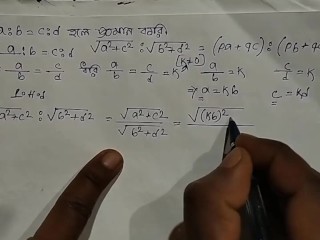 a:b = c:d হলে প্রমাণ করি,
a:b = c:d √a²+c² : √b²+d² = (pa+qc) : (pb+q
a/b = c/d ধরি a/b = c/d = K [K≠0] a/b = K c/d = K
⇒ a = Kb c = Kd
L.H.S
√a²+c² : √b²+d² = √a²+c² / √b²+d² = √(Kb)²